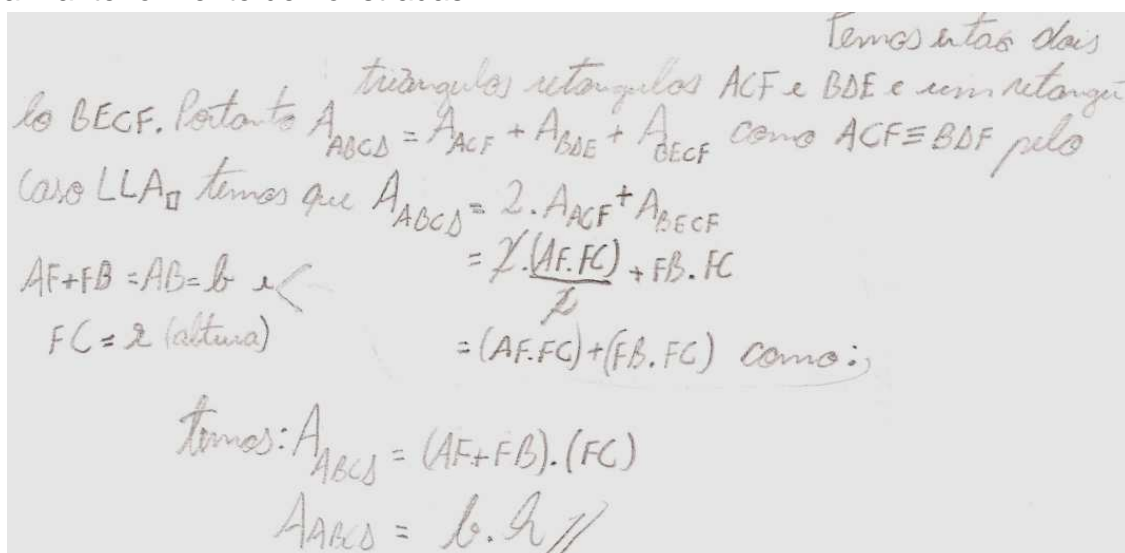 Temos então dois
triângulos retangulos ACF e BDE e um retangu
lo BECF. Portanto A_ABCD = A_ACF + A_BDE + A_BECF como ACF≡BDF pelo
caso LLA▯ temos que A_ABCD = 2. A_ACF + A_BECF
= 2.(AF.FC)/2 + FB.FC
AF+FB = AB = b e <
FC = h (altura)
= (AF.FC)+(FB.FC) como:,
temos: A_ABCD = (AF+FB).(FC)
A_ABCD = b.h //